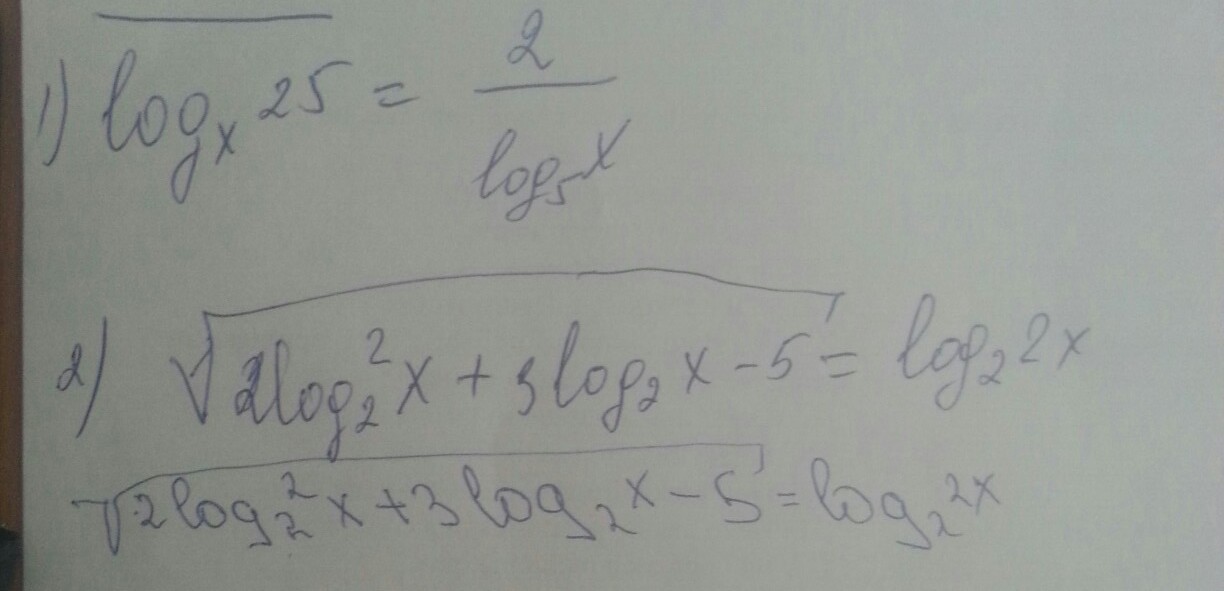 1) log_x 25 = 2 / log_5 x
2) √(2log_2^2 x + 3log_2 x - 5) = log_2 2x
√(2log_2^2 x + 3log_2 x - 5) = log_2 2x